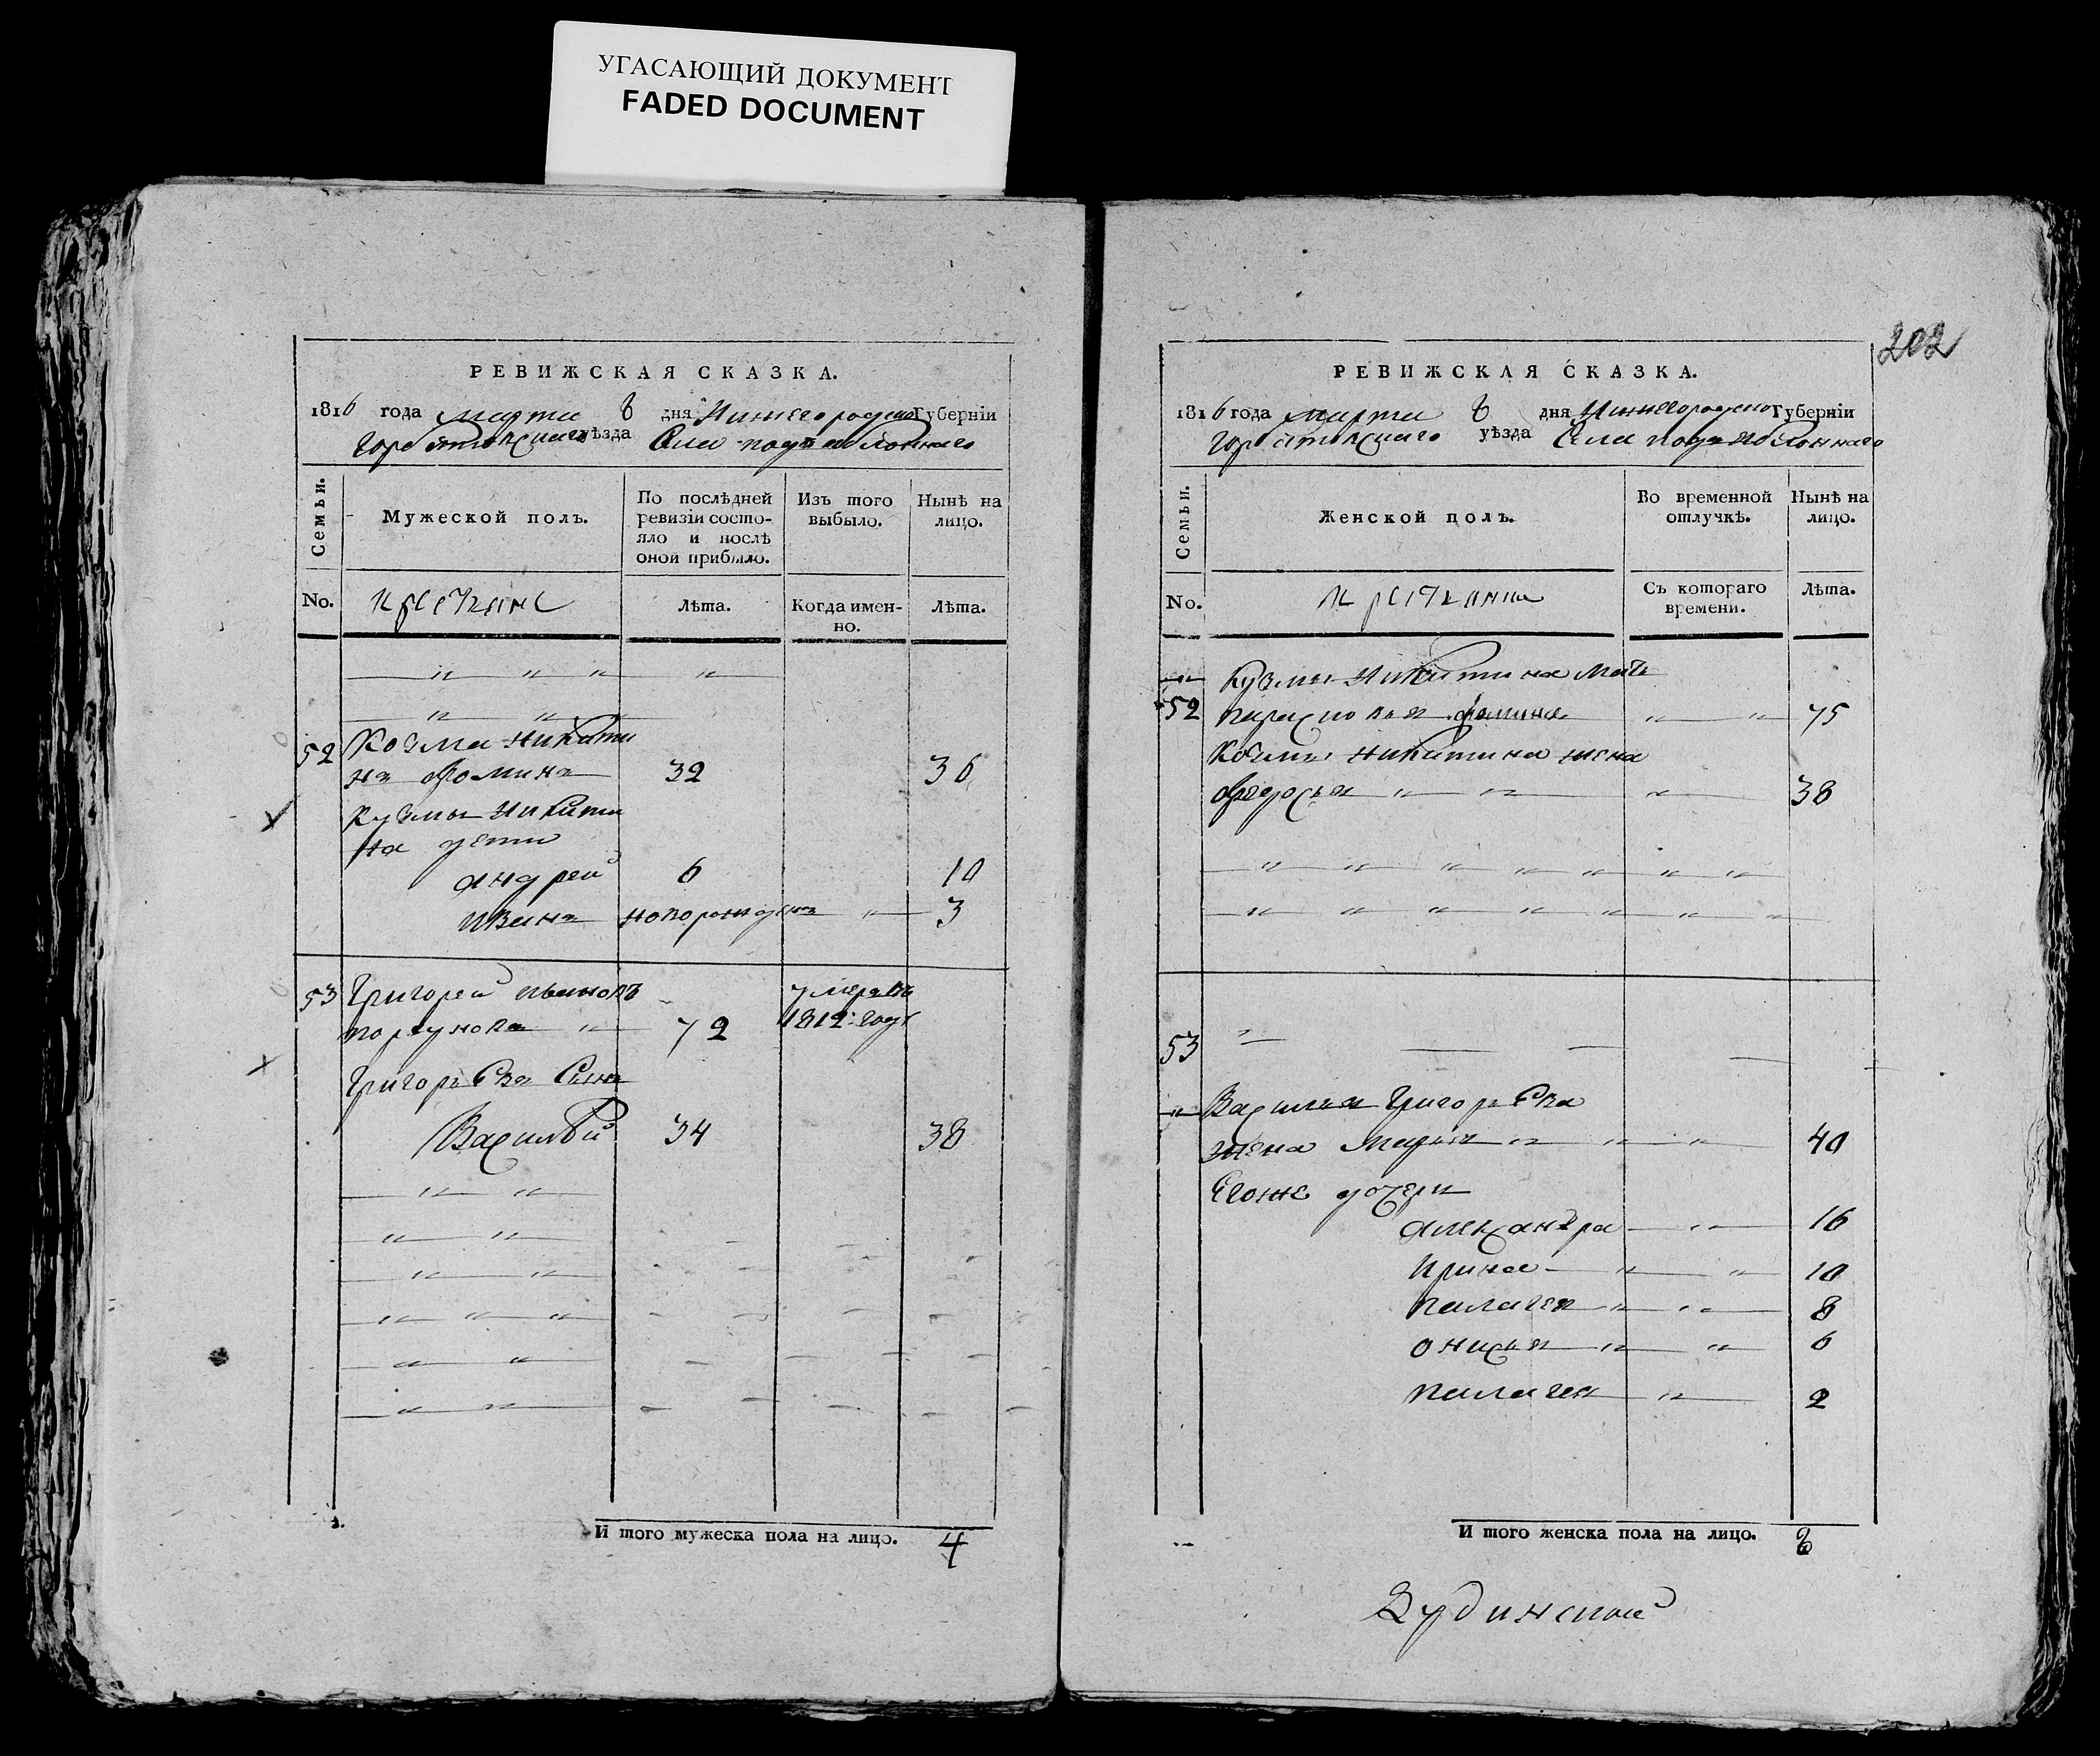 УГАСАЮЩИЙ ДОКУМЕНТ
FADED DOCUMENT
РЕВИЖСКАЯ СКАЗКА.
1816 года марта 8 дня Нижегородской Губернїи
Горбатовскаго уѣзда Села подъяблоннаго
Семьи.
Мужеской полъ.
По послѣдней ревизїи состояло и послѣ оной прибыло.
Изъ того выбыло.
Ныпѣ на лицо.
No.
крестяне
Лѣта.
Когда именно.
Лѣта.
52 Козма Никити
нъ Фоминъ 32 36
Кузмы Никити
на дети
андрей 6 10
иванъ новорожденъ 3
53 Григорей ивановъ умеръ въ
72 1812: году
Григорьева Сынъ
Василѣй 34 38
И того мужеска пола на лицо. 4
202
РЕВИЖСКАЯ СКАЗКА.
1816 года марта 8 дня Нижегородской Губернїи
Горбатовскаго уѣзда Села подъяблоннаго
Семьи.
Женской полъ.
Во временной отлучкѣ.
Нынѣ на лицо.
No.
крестянки
Съ котораго времени.
Лѣта.
Кузмы Никитина мать
52 парасковья фомина 75
Козмы никитина жена
Федосья 38
53
Василья Григорьева
жена марья 40
Егоже дочери
александра 16
Ирина 10
палагея 8
онисья 6
палагея 2
И того женска пола на лицо. 8